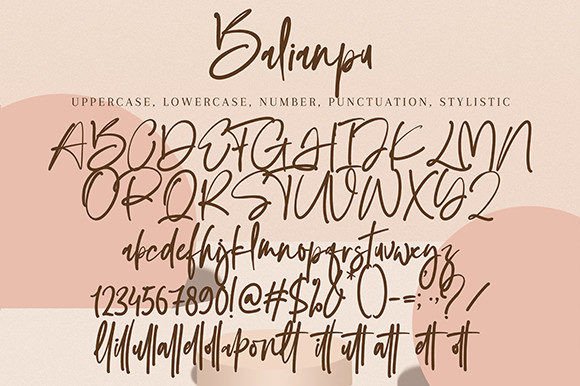 Balianpu
UPPERCASE, LOWERCASE, NUMBER, PUNCTUATION, STYLISTIC
ABCDEFGHIJKLMN
OPQRSTUVWXYZ
abcdefhijklmnopqrstuvwxyz
1234567890!@#$%&*()-=;:,.?/
itt utt att ett ott